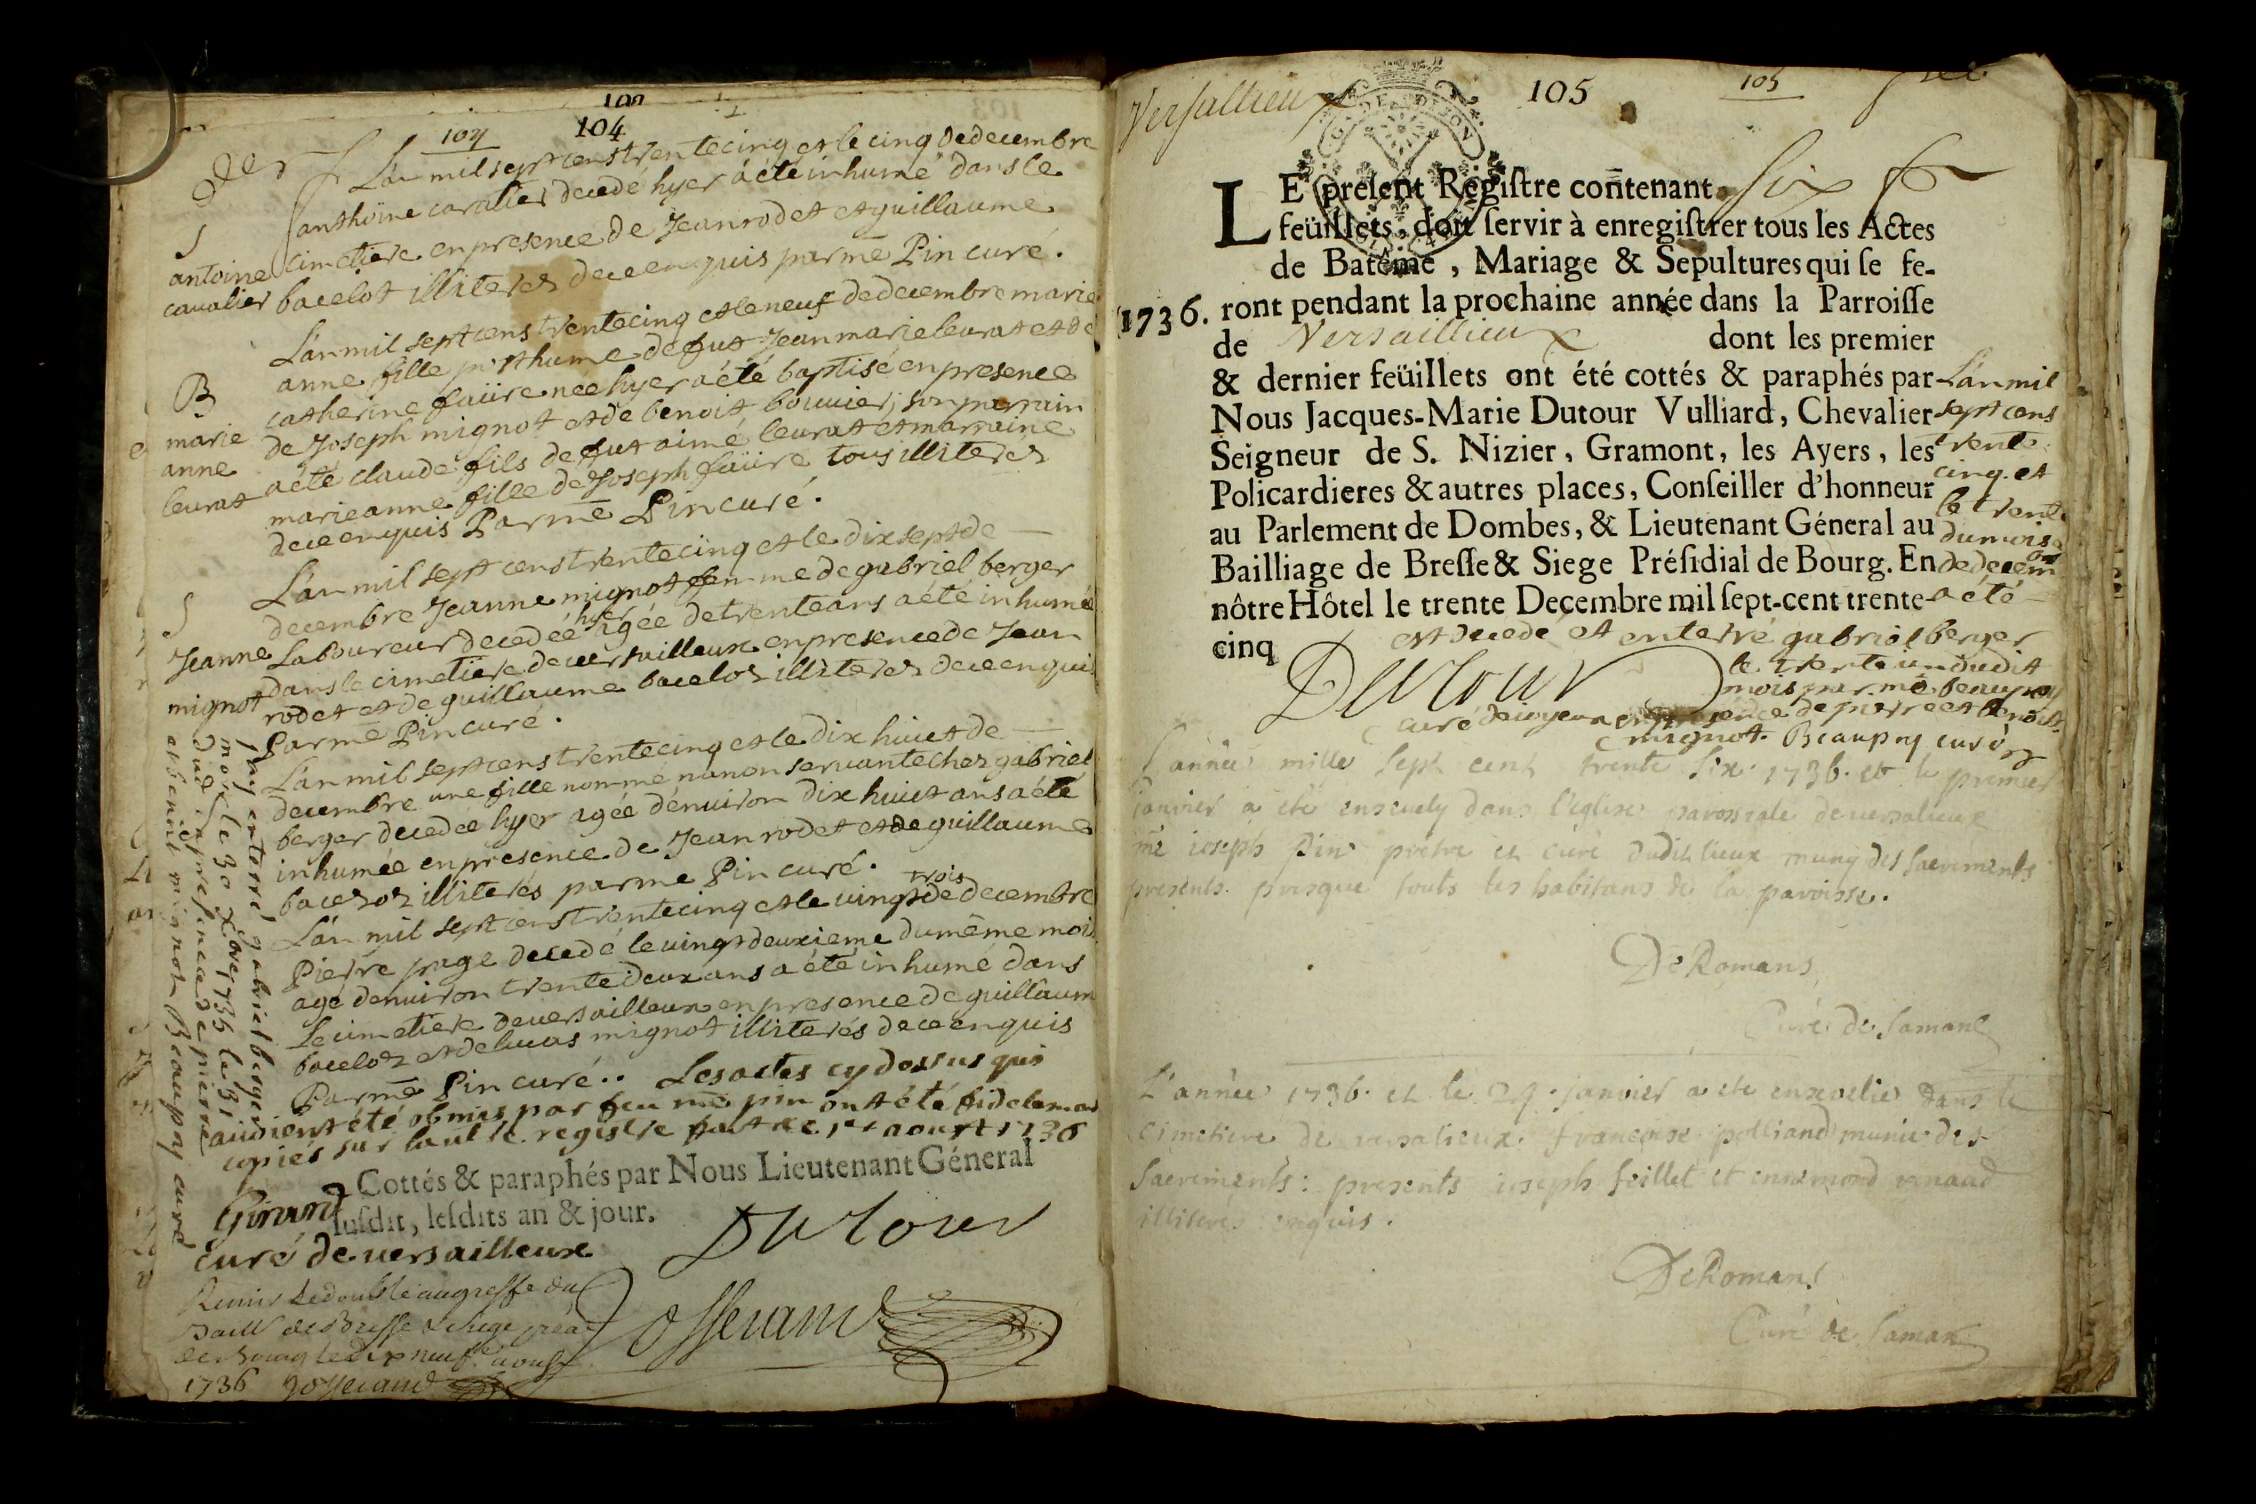 104
104
L'an mil sept cens trente cinq et le cinq de decembre
anthoine cavalier decedé hyer a été inhumé dans le
cimetiere en presence de Jean rodet et guillaume
bacelot illiterés de ce enquis par me Pin curé.
S
antoine
cavalier
L'an mil sept cens trente cinq et le neuf de decembre marie
anne fille posthume de fut Jean marie leurat et de
catherine faüre née hyer a été baptisé en presence
de Joseph mignot et de benoit bouvier, son parrain
a été claude fils de fut aimé leurat et marraine
marie anne fille de Joseph faüre tous illiterés
de ce enquis Par me Pin curé.
B
marie
anne
leurat
L'an mil sept cens trente cinq et le dix sept de
decembre Jeanne mignot femme de gabriel berger
Laboureur decedée hyer agée de trente ans a été inhumé
dans le cimetiere de versailleux en presence de Jean
rodet et de guillaume bacelot illiterés de ce enquis
Par me Pin curé.
S
Jeanne
mignot
L'an mil sept cens trente cinq et le dix huict de
decembre une fille nommé nanon servante chez gabriel
berger decedée hyer agée d'environ dix huict ans a été
inhumée en presence de Jean rodet et de guillaume
bacelot illiterés par me Pin curé.
L'an mil sept cens trente cinq et le vingt trois de decembre
Pierre page decedé le vingt deuxieme du même mois
agé d'environ trente deux ans a été inhumé dans
Le cimetiere de versailleux en presence de guillaum
bacelot et de lucas mignot illiterés de ce enquis
Par me Pin curé.. Les actes cy dessus qui
auoient été obmis par feu me pin ont été fidelemen
copiés sur l'autre registre fait ce 1er aoust 1736
Girard
curé de versailleux
j'ay enterré gabriel berger
mort le 30 Xbre 1735 le 31
dud. en presence de pierre
et benoit mignot Beaupay curé
Cottés & paraphés par Nous Lieutenant Géneral
susdit, lesdits an & jour.
Dutour
Remis le double au greffe du
Baill. de Bresse & siege
de Bourg le dix neuf aoust
1736
Versallieux
105
105
LE present Registre contenant six
feüillets, doit servir à enregistrer tous les Actes
de Batême, Mariage & Sepultures qui se fe-
1736. ront pendant la prochaine année dans la Parroisse
de Versaillieux dont les premier
& dernier feüillets ont été cottés & paraphés par
Nous Jacques-Marie Dutour Vulliard, Chevalier
Seigneur de S. Nizier, Gramont, les Ayers, les
Policardieres & autres places, Conseiller d'honneur
au Parlement de Dombes, & Lieutenant Géneral au
Bailliage de Bresse & Siege Présidial de Bourg. En
nôtre Hôtel le trente Decembre mil sept-cent trente-
cinq
Dutour
L'an mil
sept cens
trente
cinq et
le trente
du mois
de decem
a été
est decedé et enterré gabriel berger
le trente un dudit
mois par me beaupay
curé en presence de pierre et benoit
mignot. Beaupay curé
L'année mille sept cent trente six 1736. et le premier
janvier a été ensevely dans l'eglise paroissiale de versalieux
me joseph Pin prètre et curé dudit lieux muny des sacrements
presents presque touts les habitans de la paroisse.
DeRomans
Curé de Samans
L'année 1736. et le 29. janvier a été ensevelie dans le
cimetiere de versalieux francoise polliand munie des
sacrements: presents joseph feillet et ennemond renaud
illiteres enquis.
DeRomans
Curé de Samans